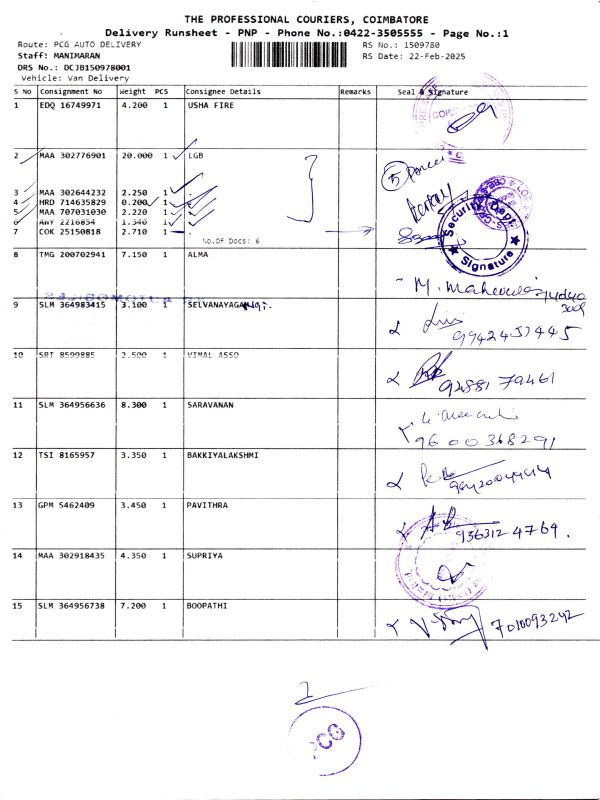 THE PROFESSIONAL COURIERS, COIMBATORE
Delivery Runsheet - PNP - Phone No.:0422-3505555 - Page No.:1
Route: PCG AUTO DELIVERY RS No.: 1509780
Staff: MANIMARAN RS Date: 22-Feb-2025
DRS No.: DCJB150978001
Vehicle: Van Delivery
S No Consignment No Weight PCS Consignee Details Remarks Seal & Signature
1 EDQ 16749971 4.200 1 USHA FIRE
2 MAA 302776901 20.000 1 LGB
5
3 MAA 302644232 2.250 1 .
4 HRD 714635829 0.200 1 .
5 MAA 707031030 2.220 1 .
6 ANY 2216854 1.340 1 .
7 COK 25150818 2.710 1 .
No.Of Docs: 6
Security Dept
Signature
8 TMG 200702941 7.150 1 ALMA
9 SLM 364983415 3.100 1 SELVANAYAGA
9942437445
10 SRT 8599885 2.500 1 VIMAL ASSO
9488179461
11 SLM 364956636 8.300 1 SARAVANAN
9600368291
12 TSI 8165957 3.350 1 BAKKIYALAKSHMI
13 GPM 5462409 3.450 1 PAVITHRA
9363124769.
14 MAA 302918435 4.350 1 SUPRIYA
15 SLM 364956738 7.200 1 BOOPATHI
7010093242
PCG